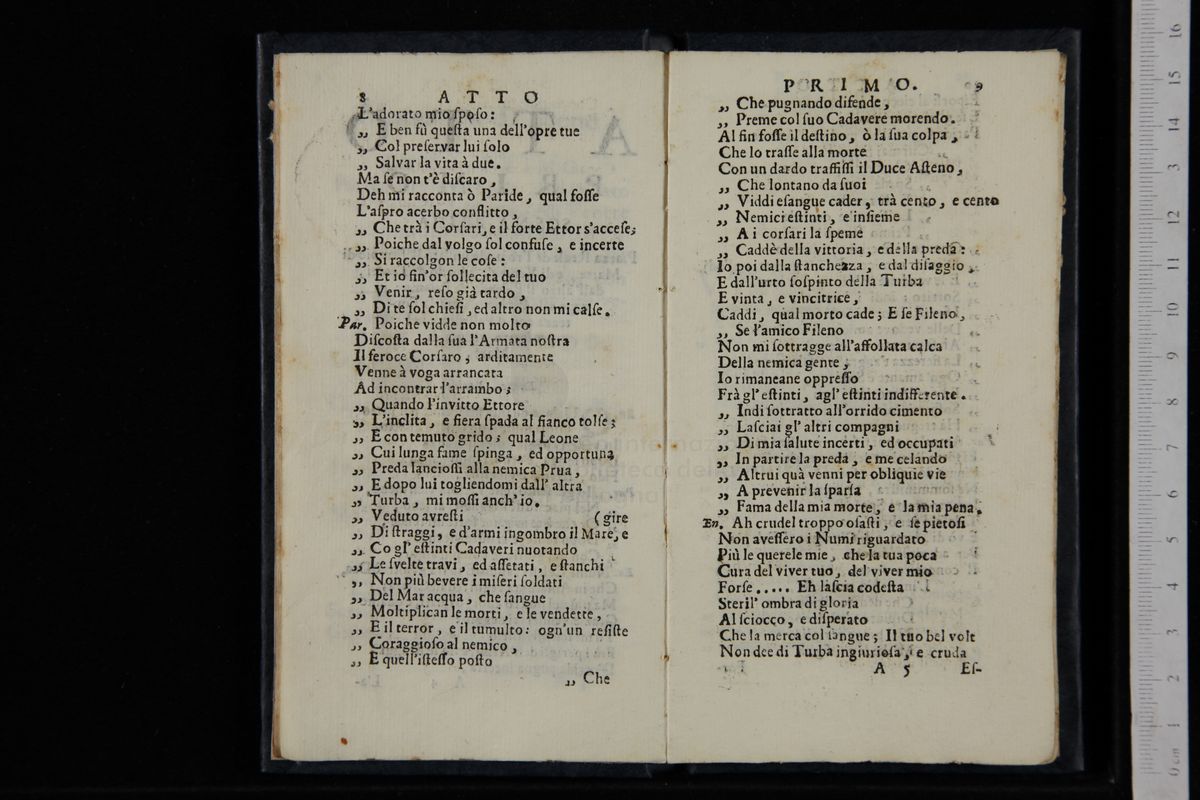 8 ATTO
L'adorato mio ſpoſo:
„ E ben fù queſta una dell'opre tue
„ Col preſervar lui ſolo
„ Salvar la vita à due.
Ma ſe non t'è diſcaro,
Deh mi racconta ò Paride, qual foſſe
L'aſpro acerbo conflitto,
„ Che trà i Corſari, e il forte Ettor s'acceſe;
„ Poiche dal volgo ſol confuſe, e incerte
„ Si raccolgon le coſe:
„ Et io fin'or ſollecita del tuo
„ Venir, reſo già tardo,
„ Di te ſol chieſi, ed altro non mi calſe.
Par. Poiche vidde non molto
Diſcoſta dalla ſua l'Armata noſtra
Il feroce Corſaro, arditamente
Venne à voga arrancata
Ad incontrar l'arrambo;
„ Quando l'invitto Ettore
„ L'inclita, e fiera ſpada al fianco tolſe;
„ E con temuto grido; qual Leone
„ Cui lunga fame ſpinga, ed opportuna
„ Preda lancioſſi alla nemica Prua,
„ E dopo lui togliendomi dall' altra
„ Turba, mi moſſi anch' io.
„ Veduto avreſti (gire
„ Di ſtraggi, e d'armi ingombro il Mare, e
„ Co gl' eſtinti Cadaveri nuotando
„ Le ſvelte travi, ed aſſetati, e ſtanchi
„ Non più bevere i miſeri ſoldati
„ Del Mar acqua, che ſangue
„ Moltiplican le morti, e le vendette,
„ E il terror, e il tumulto: ogn'un reſiſte
„ Coraggioſo al nemico,
„ E quell'iſteſſo poſto
„ Che
PRIMO. 9
„ Che pugnando difende,
„ Preme col ſuo Cadavere morendo.
Al fin foſſe il deſtino, ò la ſua colpa,
Che lo traſſe alla morte
Con un dardo traffiſſi il Duce Aſteno,
„ Che lontano da ſuoi
„ Viddi eſangue cader, trà cento, e cento
„ Nemici eſtinti, e inſieme
„ A i corſari la ſpeme
„ Caddè della vittoria, e della preda:
Io poi dalla ſtanchezza, e dal diſaggio,
E dall'urto ſoſpinto della Turba
E vinta, e vincitrice,
Caddi, qual morto cade; E ſe Fileno,
„ Se l'amico Fileno
Non mi ſottragge all'affollata calca
Della nemica gente,
Io rimaneane oppreſſo
Frà gl' eſtinti, agl' eſtinti indifferente.
„ Indi ſottratto all'orrido cimento
„ Laſciai gl' altri compagni
„ Di mia ſalute incerti, ed occupati
„ In partire la preda, e me celando
„ Altrui quà venni per obliquie vie
„ A prevenir la ſparſa
„ Fama della mia morte, e la mia pena.
En. Ah crudel troppo oſaſti, e ſe pietoſi
Non aveſſero i Numi riguardato
Più le querele mie, che la tua poca
Cura del viver tuo, del viver mio
Forſe ..... Eh laſcia codeſta
Steril' ombra di gloria
Al ſciocco, e diſperato
Che la merca col ſangue; Il tuo bel volt
Non dee di Turba ingiurioſa, e cruda
A 5 Eſ-